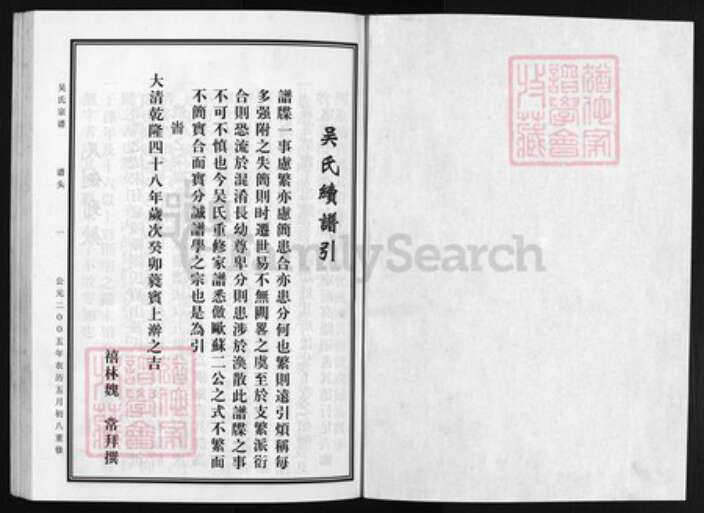 吴氏續譜引
譜牒一事慮繁亦慮簡患合亦患分何也繁則遠引煩稱每
多强附之失簡則时遷世易不無闕畧之虞至於支繁派衍
合則恐流於混淆長幼尊卑分則患涉於渙散此譜牒之事
不可不慎也今吴氏重修家譜悉倣歐蘇二公之式不繁而
不簡實合而實分誠譜學之宗也是為引
旹
大清乾隆四十八年歲次癸卯蕤賓上澣之吉
禧林魏 常拜撰
吴氏宗谱 谱头 一 公元二00五年农历五月初八重修
FamilySearch